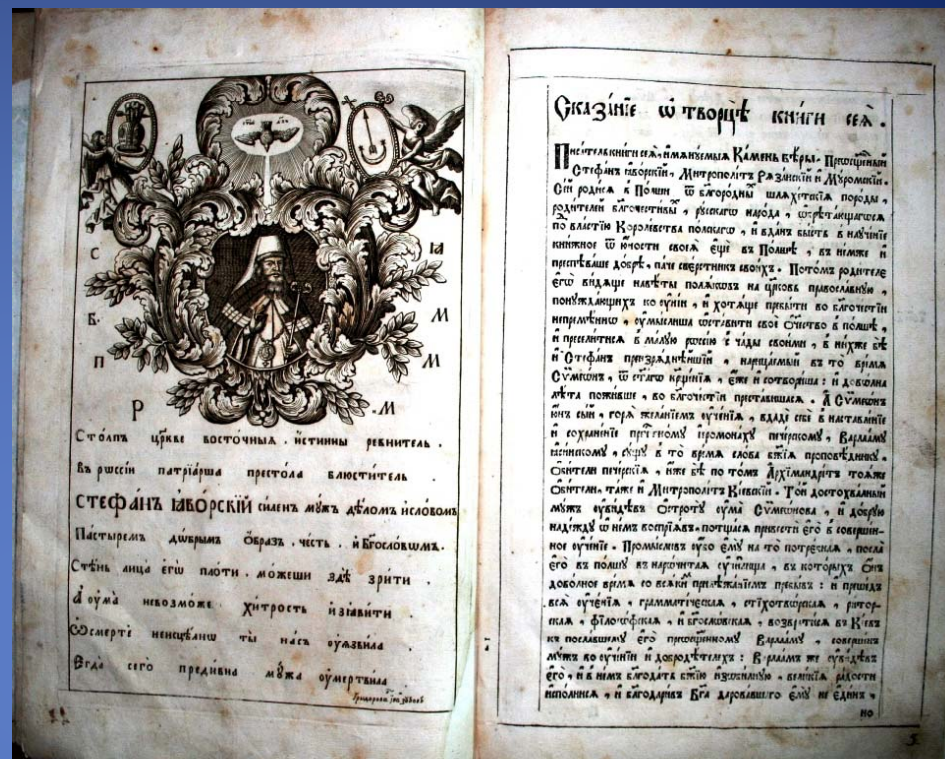 С ІА
Б. М
П М
Р .М
Сто́лпъ цр҃кве восто́чныѧ . и҆́стинны ревни́тель .
Въ рѡссі́и патрїа́рша престо́ла блюсти́тель
СТЕФА́НЪ ІАВО́РСКІЙ си́ленъ мꙋ́жъ дѣ́ломъ и҆ сло́вомъ
Па́стыремъ дѡ́брымъ ѻ҆́бразъ . че́сть . и҆ Бг҃осло́вѡмъ .
Стѣ́нь лица̀ є҆гѡ̀ пло́ти . мо́жеши здѣ̀ зрѣ́ти .
А҆ ᲂу҆ма̀ невозмо́же хи́трость и҆з̾ѧви́ти
Ѽ сме́рте неисцѣ́лнѡ ты̀ на́съ ᲂу҆ѧзви́ла
Є҆гда̀ сего̀ преди́вна мꙋ́жа ᲂу҆мертви́ла
Сказа́нїе ѡ҆ творцѣ̀ кни́ги сеѧ̀ .
Писа́тель кни́ги сеѧ̀ , и҆мянꙋ́емыѧ Ка́мень вѣ́ры . Преѡсщ҃е́нный
Стефа́нъ ꙗ҆во́рскїй , Митрополі́тъ Рѧза́нскїй и҆ Мꙋ́ромскїй .
Се́й роди́сѧ в По́лши ѿ бл҃горо́дны шлѧ́хетскїѧ поро́ды ,
роди́телей бл҃гочести́вы , рꙋ́сскагѡ наро́да , ѡ҆брѣта́ющагѡсѧ
по вла́стїю Короле́вства по́лскагѡ , и҆ вда́нъ бы́сть в наꙋче́нїе
кни́жное ѿ ю҆́ности своеѧ̀ є҆щѐ въ По́лшѣ , въ не́мже и҆
преспѣва́ше до́брѣ , па́че све́рстникъ свои́хъ . Пото́мъ роди́теле
є҆гѡ̀ ви́дѧще навѣ́ты полѧ́кѡвъ на цр҃ковь правосла́внꙋю ,
понꙋжда́ющихъ ко ᲂу҆нїи , и҆ хотѧ́ще пребы́ти во бл҃гоче́стїи
непремѣ́ннѡ , ᲂу҆мы́слиша ѡ҆ста́вити своѐ ѻ҆те́чество в по́лшѣ ,
и҆ пресели́тисѧ в ма́лꙋю рѡссі́ю с ча́ды свои́ми , в ни́хже бѣ̀
и҆ Стефа́нъ преизрѧ́днѣйшїй , нарица́емый въ то̀ вре́мѧ
Сѷмеѡ́нъ , ѿ ст҃а́гѡ крщ҃е́нїѧ , є҆́же и҆ сотвори́ша : и҆ дово́лна
лѣ́та пожи́вше , во бл҃гоче́стїи преста́вишасѧ . А҆ Сѷмеѡ́нъ
ю҆́нъ сы́й , горѧ̀ жела́нїемъ ᲂу҆че́нїѧ , вдадѐ себѐ в наставле́нїе
и҆ сохране́нїе прⷭ҇тно́мꙋ і҆еромона́хꙋ пече́рскомꙋ , Варлаа́мꙋ
ꙗ҆си́нскомꙋ , сꙋ́щꙋ в то̀ вре́мѧ сло́ва бж҃їѧ проповѣ́дникꙋ ,
ѻ҆би́тели пече́рскїѧ , и҆́же бѣ̀ по то́мъ А҆рхїмандрі́тъ то́ѧже
ѻ҆би́тели , та́же и҆ Митрополі́тъ Кі́евскїй . То́й достохва́лный
мꙋ́жъ ᲂу҆ви́дѣвъ ѻ҆стротꙋ̀ ᲂу҆ма̀ Сѷмеѡ́нова , и҆ до́брꙋю
наде́ждꙋ ѡ҆ не́мъ воспрїѧ́въ , потща́сѧ привестѝ є҆го̀ в соверше́н-
ное ᲂу҆че́нїе . Промы́сливъ ᲂу҆́бо є҆мꙋ̀ на то̀ потре́бнаѧ , посла̀
є҆го̀ въ по́лшꙋ въ нарочи́таѧ ᲂу҆чи́лища , въ кото́рыхъ ѻ҆́нъ
дово́лное вре́мѧ со всѧ́ки прилѣжа́нїемъ пребы́въ : и҆ проше́дъ
всѧ̀ ᲂу҆че́нїѧ , граммати́ческаѧ , стїхотво́рскаѧ , ри́тор-
скаѧ , фїлосо́фскаѧ , и҆ бг҃осло́вскаѧ , возврати́сѧ въ Кі́евъ
къ посла́вшемꙋ є҆го̀ преѡсщ҃е́нномꙋ Варлаа́мꙋ , соверше́нъ
мꙋ́жъ во ᲂу҆че́нїи и҆ доброде́телехъ : Варлаа́мъ же ᲂу҆ви́дѣвъ
є҆го̀ , и҆ в не́мъ бл҃года́ть бж҃їю и҆з̾ѻби́лнꙋю , вели́кїѧ ра́дости
и҆спо́лнисѧ , и҆ бл҃годари́въ Бг҃а дарова́вшаго є҆мꙋ̀ не є҆ди́нъ ,
но
5